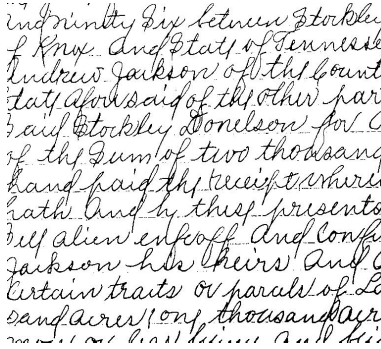 and ninity Six between Stockley
f Knox and State of Tennesse
Andrew Jackson of the Count
tate aforesaid of the other par
Said Stockley Donelson for
of the Sum of two thousand
hand paid the receipt wheri
hath and by these presents
Sell alien enfeoff and Confi
Jackson his heirs and
Certain traits or parcals of La
sand acres one thousand acr
more or less being and